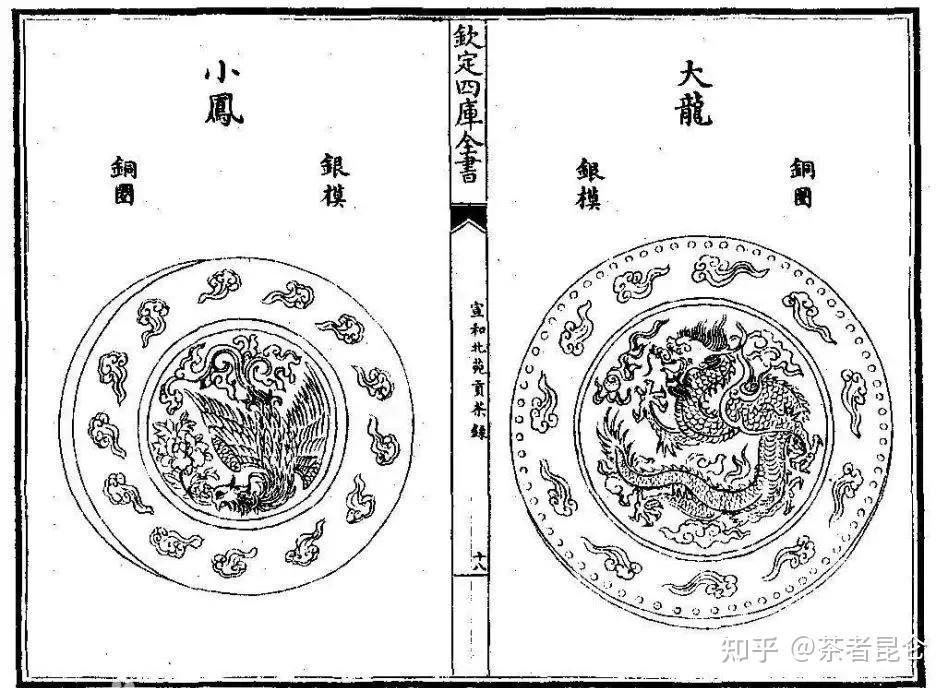 大龍
銅圈
銀模
欽定四庫全書
宣和北苑貢茶錄
十八
小鳳
銀模
銅圈
知乎 @茶者昆仑